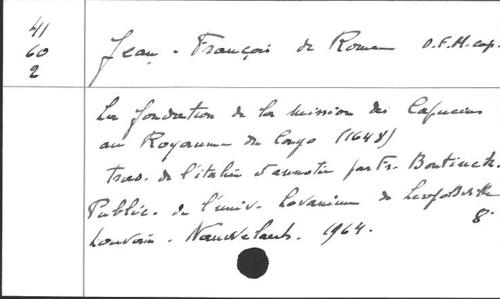 41
60
2
Jean-François de Rome O.F.M. cap.
La fondation de la mission des Capucins
au Royaume du Congo (1648)
trad. de l'italien et annotée par Fr. Bontinck.
Public. de l'univ. Lovanium de Léopoldville
8°
Louvain. Nauwelaerts. 1964.